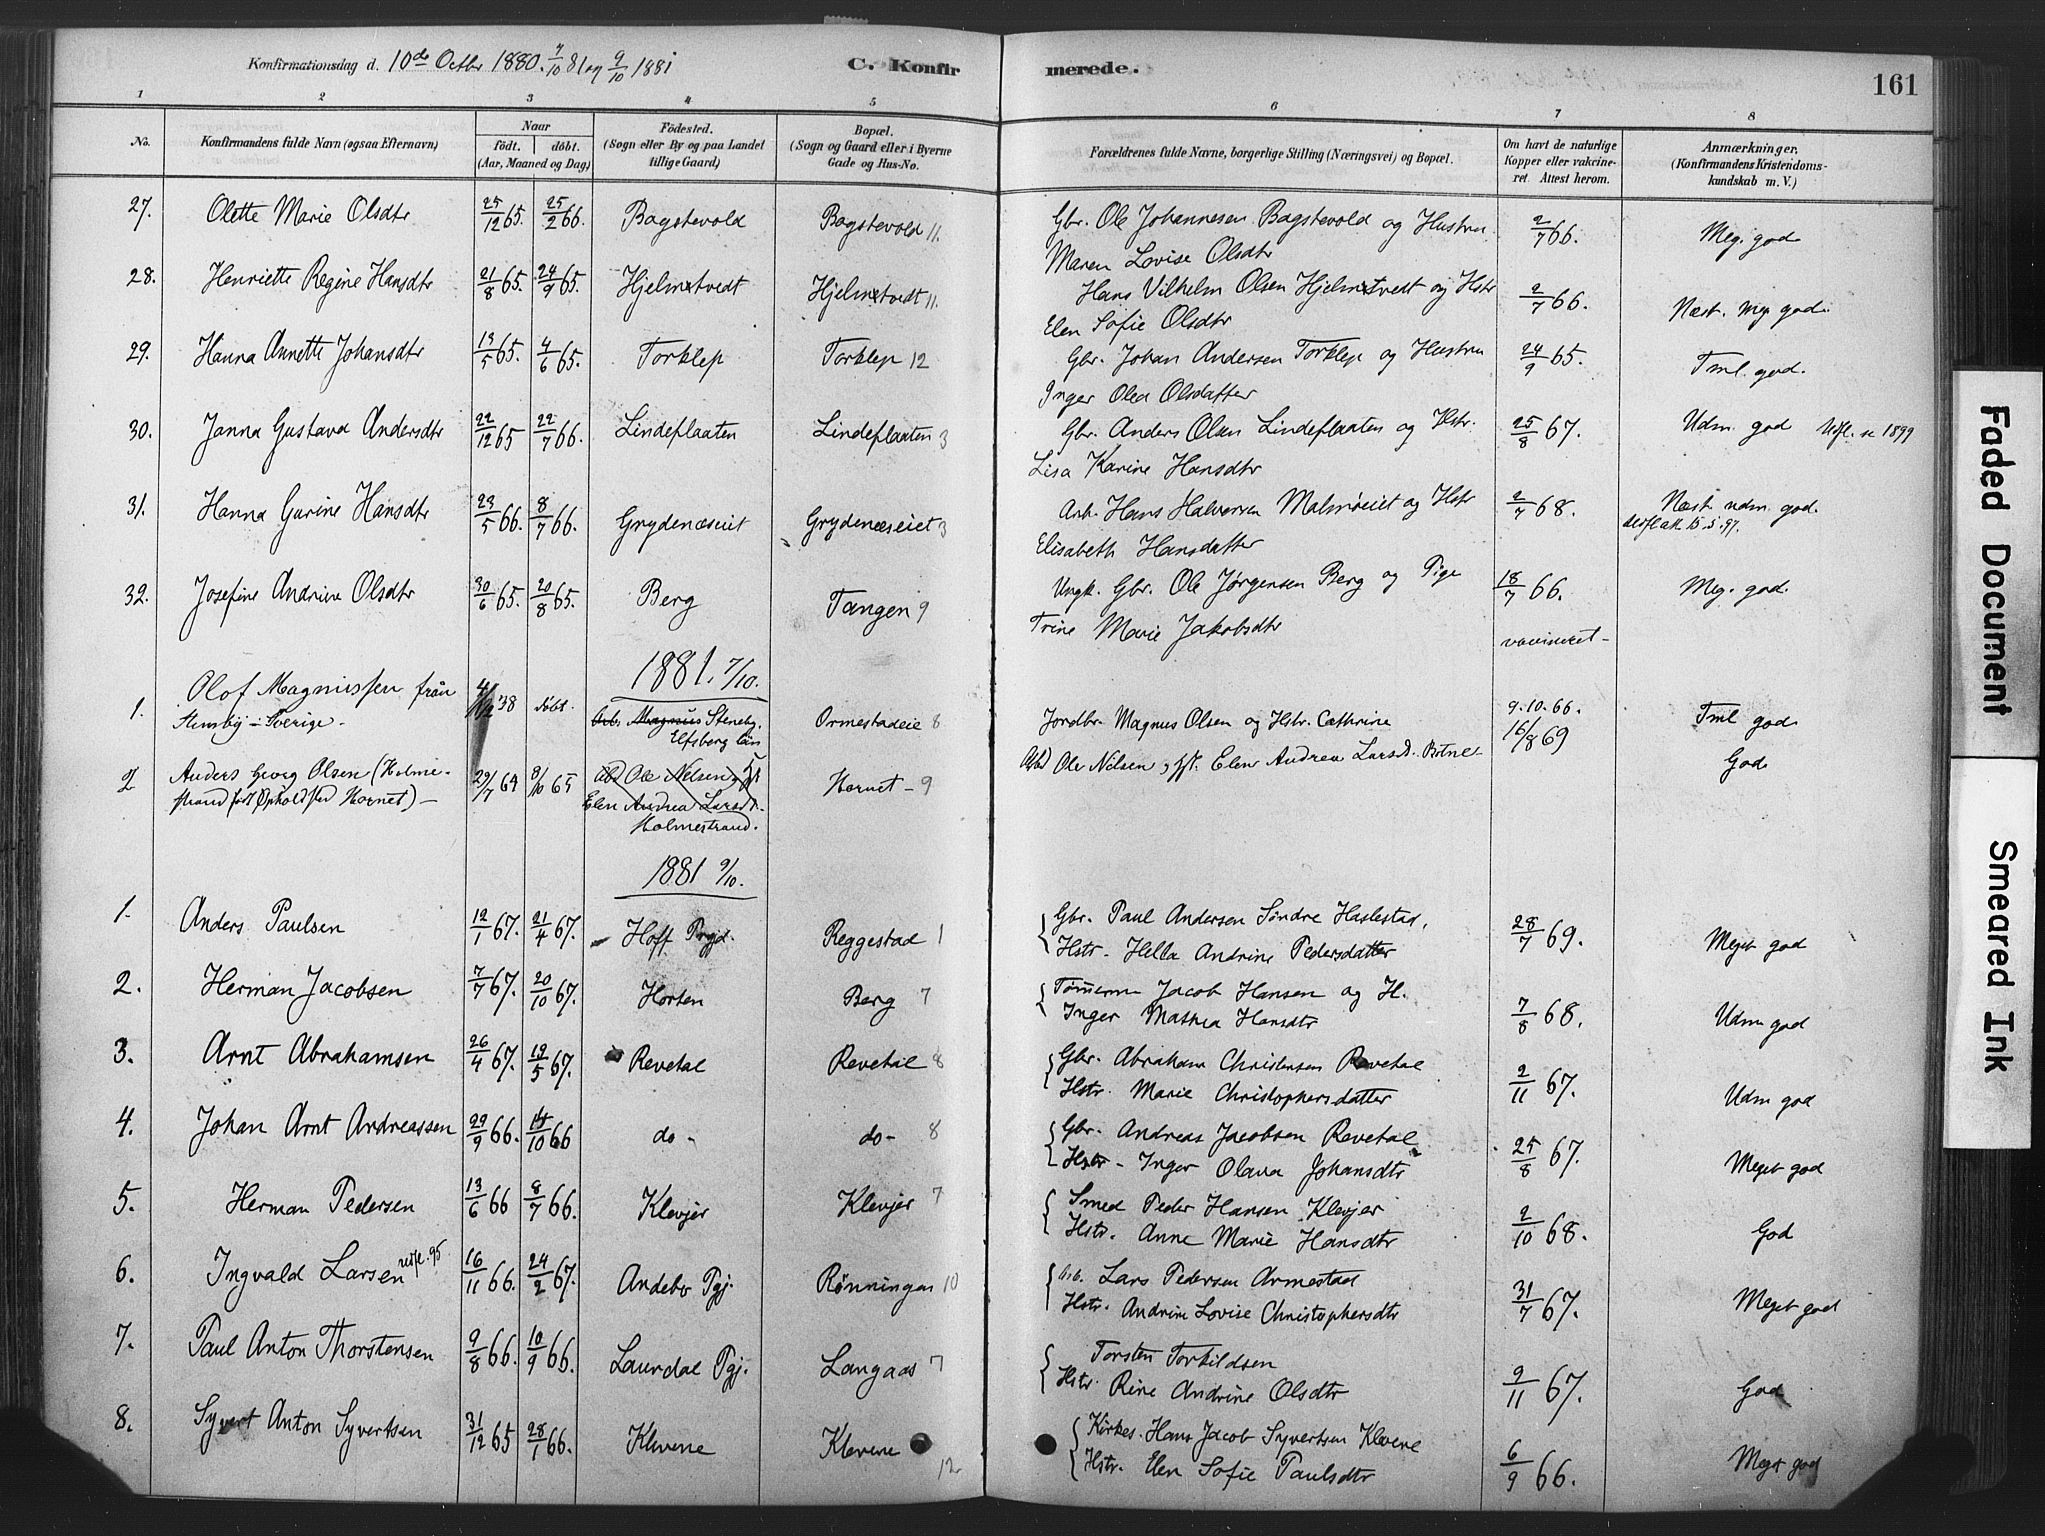 Konfirmationsdag d. 10de Octbr 1880. 7/10 81 og 9/10 1881
C. Konfirmerede.
161
1 2 3 4 5 6 7 8
No.
Konfirmandens fulde Navn (ogsaa Efternavn)
Naar
födt. döbt.
(Aar, Maaned og Dag)
Födested.
(Sogn eller By og paa Landet
tillige Gaard)
Bopæl.
(Sogn og Gaard eller i Byerne
Gade og Hus-No.
Forældrenes fulde Navne, borgerlige Stilling (Næringsvei) og Bopæl.
Om havt de naturlige
Kopper eller vakcine-
ret. Attest herom.
Anmærkninger.
(Konfirmandens Kristendoms-
kundskab m. V.)
27. Olette Marie Olsdtr 25/12 65. 25/2 66. Bagstevold Bagstevold 11. Gbr. Ole Johannesen Bagstevold og Hustru 2/7 66. Meg. god
Maren Lovise Olsdtr
28. Henriette Regine Hansdtr 21/8 65. 24/9 65. Hjelmtvedt Hjelmtvedt 11. Hans Vilhelm Olsen Hjelmtvedt og Hstr 2/7 66. Næst. meg god.
Elen Sofie Olsdtr
29. Hanna Annette Johansdtr 13/5 65. 4/6 65. Torklep Torklep 12 Gbr. Johan Andersen Torklep og Hustru 24/9 65. Tml. god.
Inger Olea Olsdatter
30. Janna Gustava Andersdtr 22/12 65 22/7 66. Lindeflaaten Lindeflaaten 3 Gbr. Anders Olsen Lindeflaaten og Hstr. 25/8 67. Udm. god Udfl. 1899
Lisa Karine Hansdtr
31. Hanna Gurine Hansdtr 23/5 66. 8/7 66. Grydenæseiet Grydenæseiet 3 Arb. Hans Halvorsen Malmøeiet og Hstr 2/7 68. Næst. udm. god.
Elisabeth Hansdatter
32. Josefine Andrine Olsdtr 30/6 65. 20/8 65. Berg Tangen 9 Ungk. Gbr. Ole Jørgensen Berg og Pige 18/7 66. Meg. god.
Trine Marie Jakobsdtr
1881. 7/10.
vaccineret
1. Olof Magnussen från 38 döbt. Arb. Magnus Steneby. Ormestadeie 8 Jordbr. Magnus Olsen og Hstr. Cathrine 9.10.66. Tml god
Stenbÿ - Sverige - Elfsberg län
2 Anders Georg Olsen (Holme- 29/7 64 8/10 65 Arb Ole Nilsen og Hornet - 9 Arbd Ole Nilsen, Elen Andrea Larsd. Botne 16/8 69 God
strand født Ophold sted Hornet) - Elen Andrea Larsd.
Holmestrand.
1881 9/10.
1. Anders Paulsen 12/1 67. 21/4 67. Hoff Prgd. Reggestad 1 Gbr. Paul Andersen Søndre Haslestad, 28/7 69. Meget god
Hstr. Hella Andrine Pedersdatter
2. Herman Jacobsen 7/7 67. 20/10 67. Horten Berg 7 Tømmerm Jacob Hansen og H. 7/8 68. Udm god
Inger Mathea Hansdtr
3. Arnt Abrahamsen 26/4 67. 19/5 67. Revetal Revetal 8 Gbr. Abraham Christensen Revetal 2/11 67. Udm god
Hstr. Marie Christophersdatter
4. Johan Arnt Andreassen 29/9 66. 14/10 66 do - do - 8 Gbr. Andreas Jacobsen Revetal 25/8 67. Meget god
Hstr - Inger Olava Johansdtr
5. Herman Pedersen 13/6 66 8/7 66. Klevjer Klevjer 7 Smed Peder Hansen Klevjer 2/10 68. God
Hstr. Anne Marie Hansdtr
6. Ingvald Larsen udfl. 95. 16/11 66. 24/2 67. Andebo Pgj. Rønningen 10 Arb. Lars Pedersen Armestad 31/7 67. Meget god
Hstr. Andrine Lovise Christophersdtr
7. Paul Anton Thorstensen 9/8 66. 10/9 66. Laurdal Pgj. Langaas 7 Torsten Torkildsen 9/11 67. God
Hstr. Rine Andrine Olsdtr
8. Syvert Anton Syvertsen 31/12 65 28/1 66. Klevene Klevene 12 Kirkes. Hans Jacob Syvertsen Klevene 6/9 66. Meget god
Hstr. Elen Sofie Paulsdtr
Faded Document
Smeared Ink